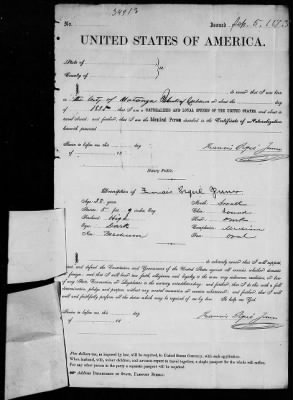 34913
No.
Issued Feb. 5, 1873
UNITED STATES OF AMERICA.
State of
County of
ss.
do swear that I was born
in the City of Matanzas Island of Cuba on or about the
day of
18 ; that I am a NATURALIZED AND LOYAL CITIZEN OF THE UNITED STATES and about to
travel abroad; and further, that I am the Identical Person described in the Certificate of Naturalization
herewith presented.
Sworn to before me, this day
of 18
Notary Public.
Description of
Age: 32 years Mouth: Small
Stature: 5 feet 9 inches Eng. Chin: Round
Forehead: High Hair: Dark
Eyes: Dark Complexion: Medium
Nose: Medium Face: Oval
do solemnly swear that I will support,
protect, and defend the Constitution and Government of the United States against all enemies, whether domestic
or foreign; and that I will bear true faith, allegiance, and loyalty to the same, any ordinance, resolution, or law
of any State, Convention, or Legislature to the contrary notwithstanding; and further, that I do this with a full
determination, pledge, and purpose, without any mental reservation or evasion whatsoever; and, further, that I will
well and faithfully perform all the duties which may be required of me by law. So help me God.
Sworn to before me, this day
of 18
Five dollars tax, as imposed by law, will be required, in United States Currency, with each application.
When husband, wife, minor children, and servants expect to travel together, a single passport for the whole will suffice.
For any other person in the party a separate passport will be required.
Address DEPARTMENT OF STATE, PASSPORT BUREAU.